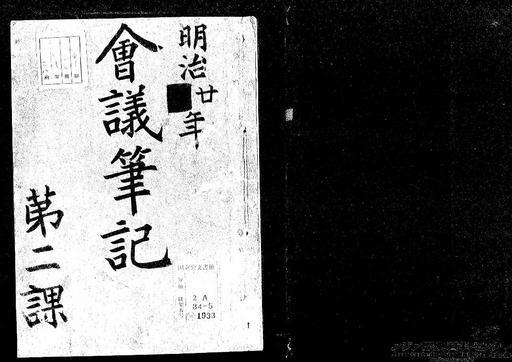 明治廿年
會議筆記
第二課
国立公文書館
2 A
34-5
1933